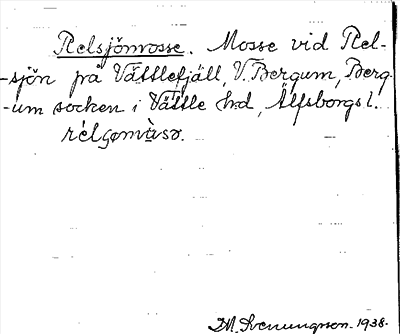 Relsjömosse. Mosse vid Rel-
-sjön på Vättlefjäll, V. Bergum, Berg-
-um socken i Vättle hd, Älfsborgs l.
D.M. Svenungsson. 1938.